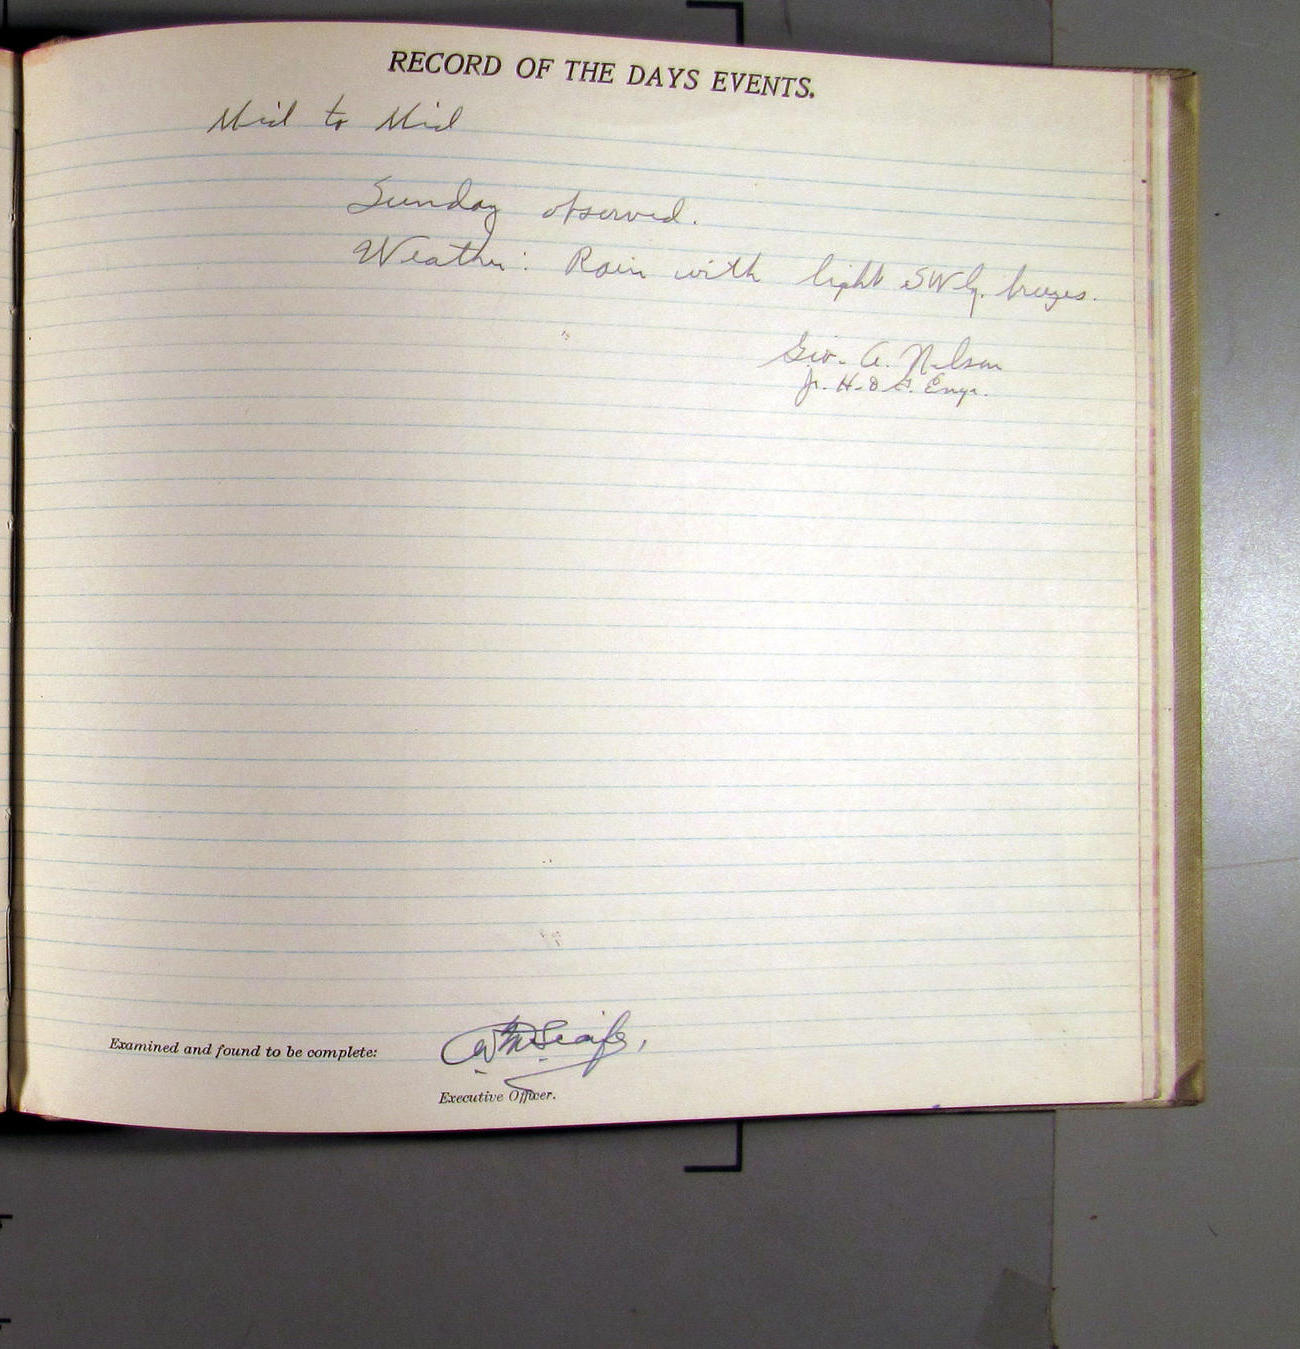 RECORD OF THE DAYS EVENTS.
Mid to Mid
Sunday observed.
Weather: Rain with light SWly. breezes.
Geo. A. Nelson
Jr. H. & G. Engr.
Examined and found to be complete:
Executive Officer.